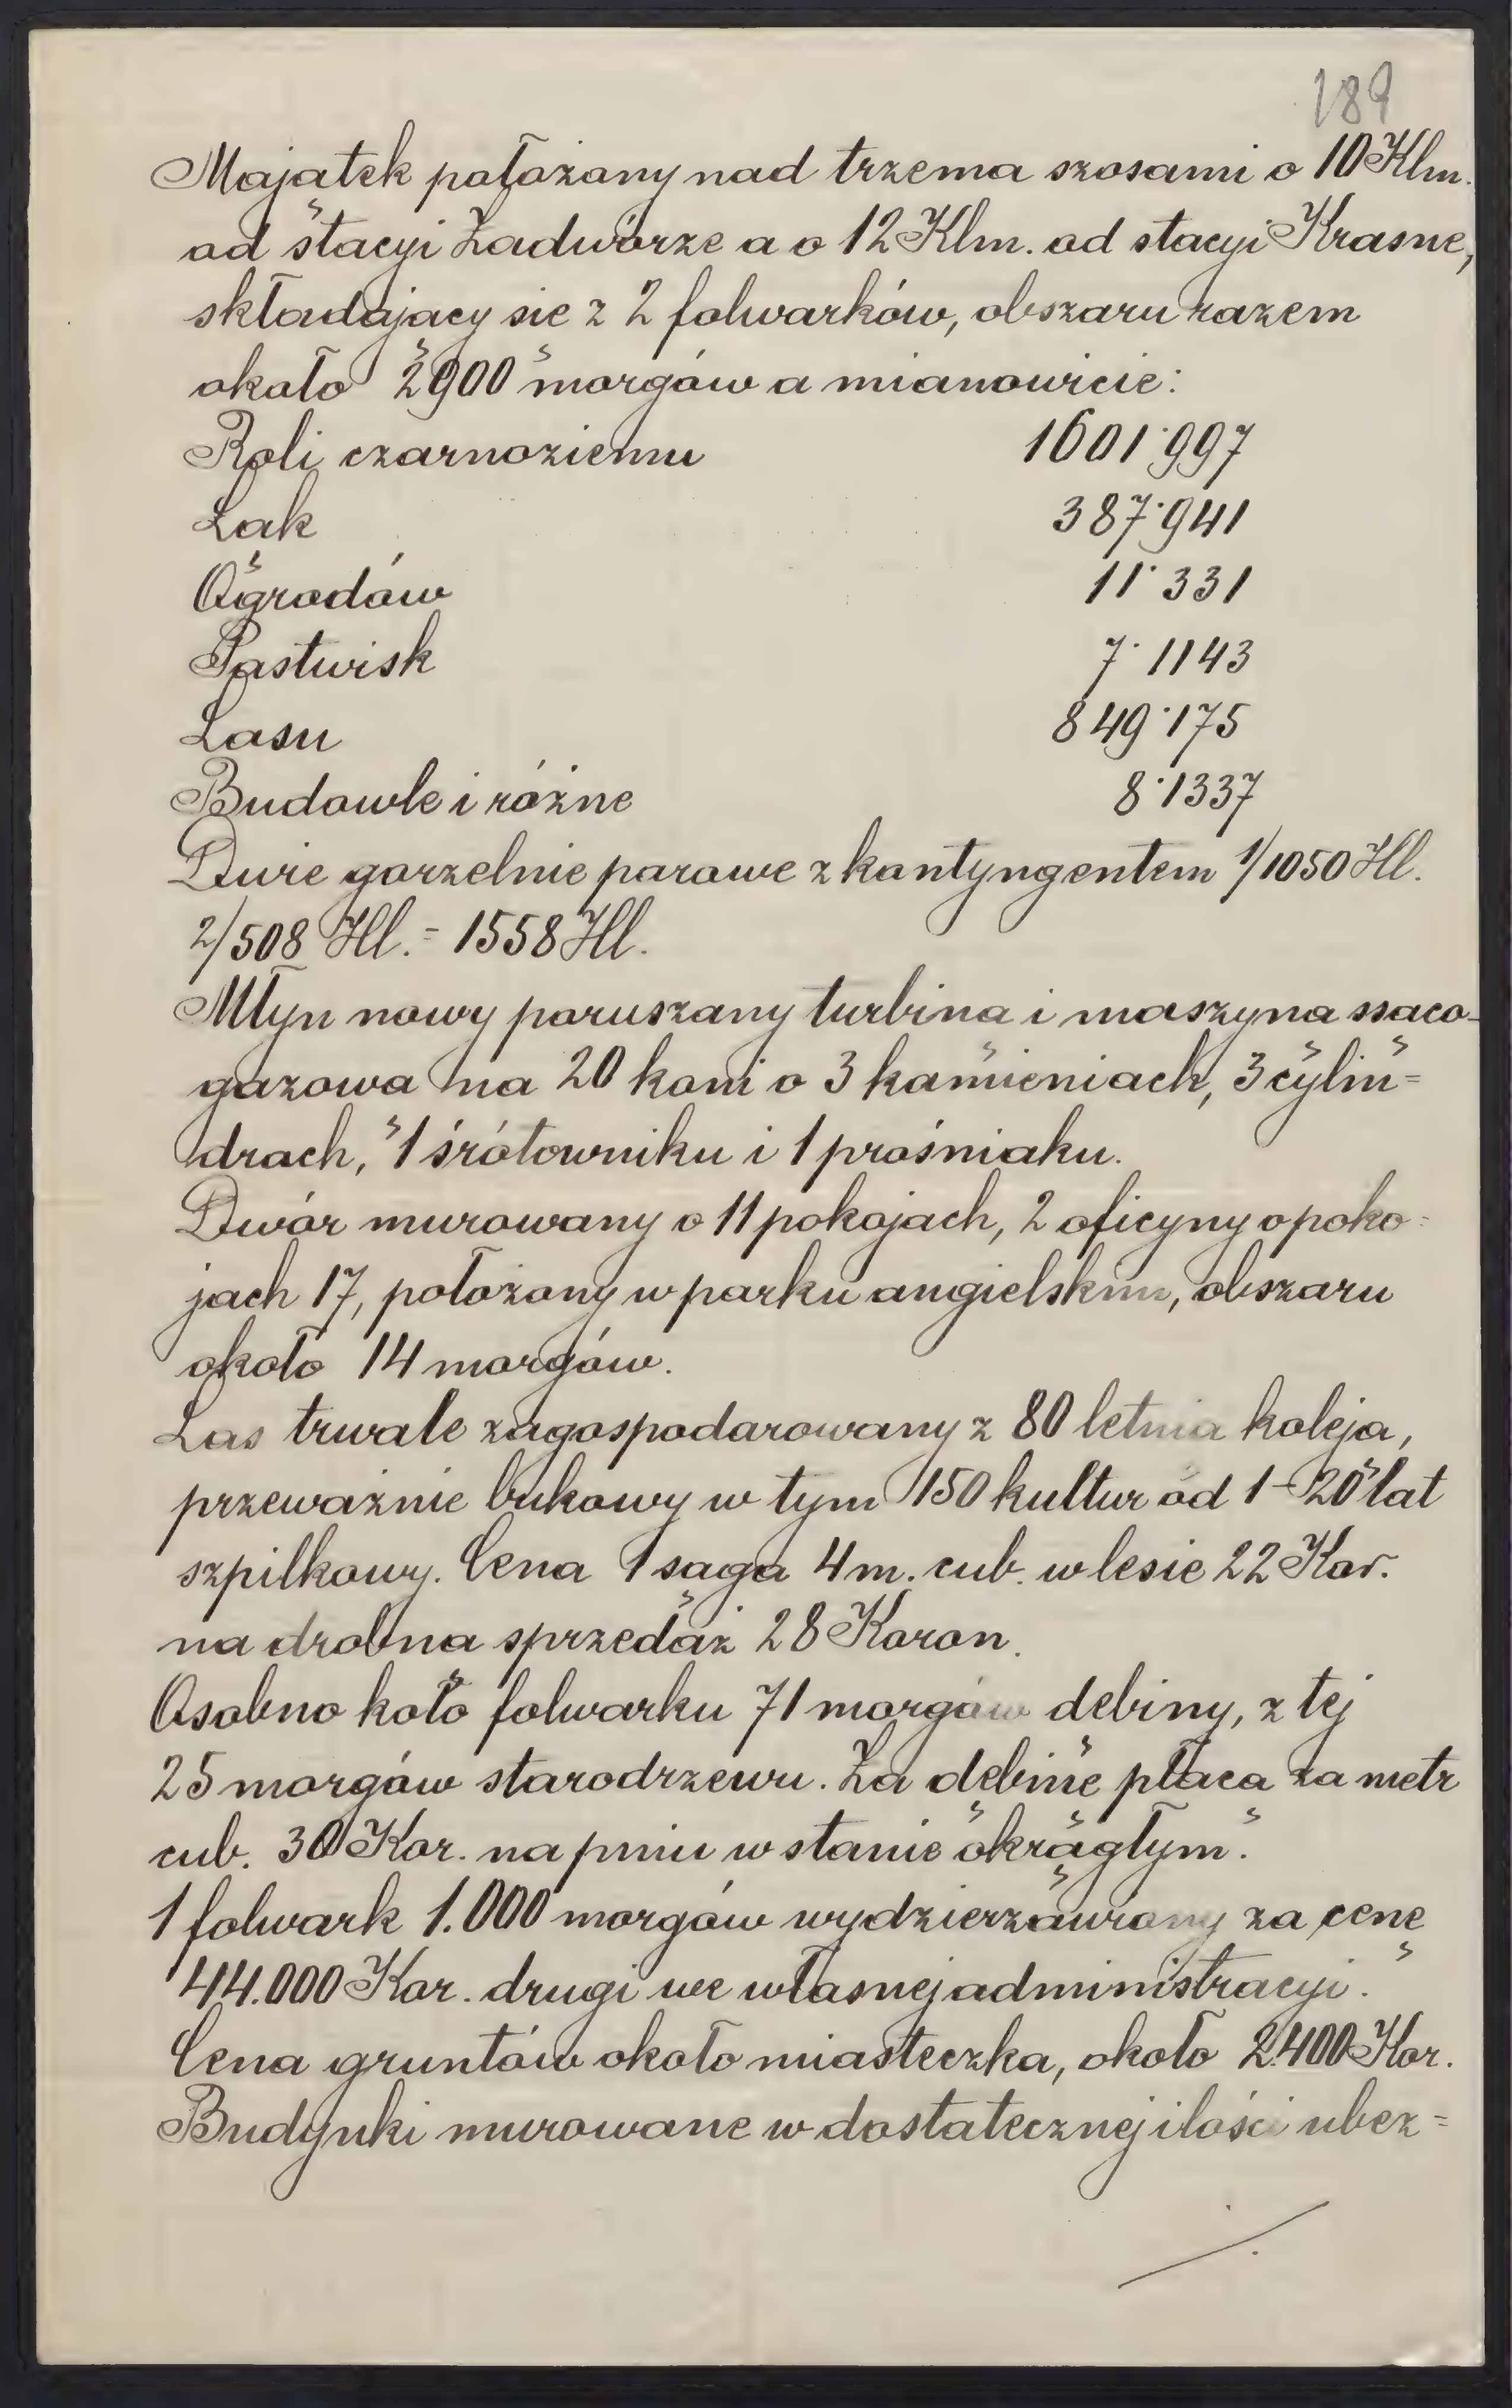 189
Majątek położony nad trzema szosami o 10 Klm.
od stacyi Zadwórze a o 12 Klm. od stacyi Krasne,
składający się z 2 folwarków, obszaru razem
około 2900 morgów a mianowicie:
Roli czarnoziemu 1601·997
Łąk 387·941
Ogrodów 11·331
Pastwisk 7·1143
Lasu 849·175
Budowle i różne 8·1337
Dwie gorzelnie parowe z kontyngentem 1/1050 Hl.
2/508 Hl. = 1558 Hl.
Młyn nowy poruszany turbiną i maszyną ssąco-
gazową na 20 koni o 3 kamieniach, 3 cylin=
drach, 1 śrótowniku i 1 prośniaku.
Dwór murowany o 11 pokojach, 2 oficyny o poko=
jach 17, położony w parku angielskim, obszaru
około 14 morgów.
Las trwale zagospodarowany z 80 letnią koleją,
przeważnie bukowy w tym 150 kultur od 1-20 lat
szpilkowy. Cena 1 sąga 4 m. cub. w lesie 22 Kor.
na drobną sprzedaż 28 Koron.
Osobno koło folwarku 71 morgów dębiny, z tej
25 morgów starodrzewu. Za dębinę płacą za metr
cub. 30 Kor. na pniu w stanie okrągłym.
1 folwark 1.000 morgów wydzierżawiony za cenę
44.000 Kor. drugi we własnej administracyi.
Cena gruntów około miasteczka, około 2400 Kor.
Budynki murowane w dostatecznej ilości ubez=
./.